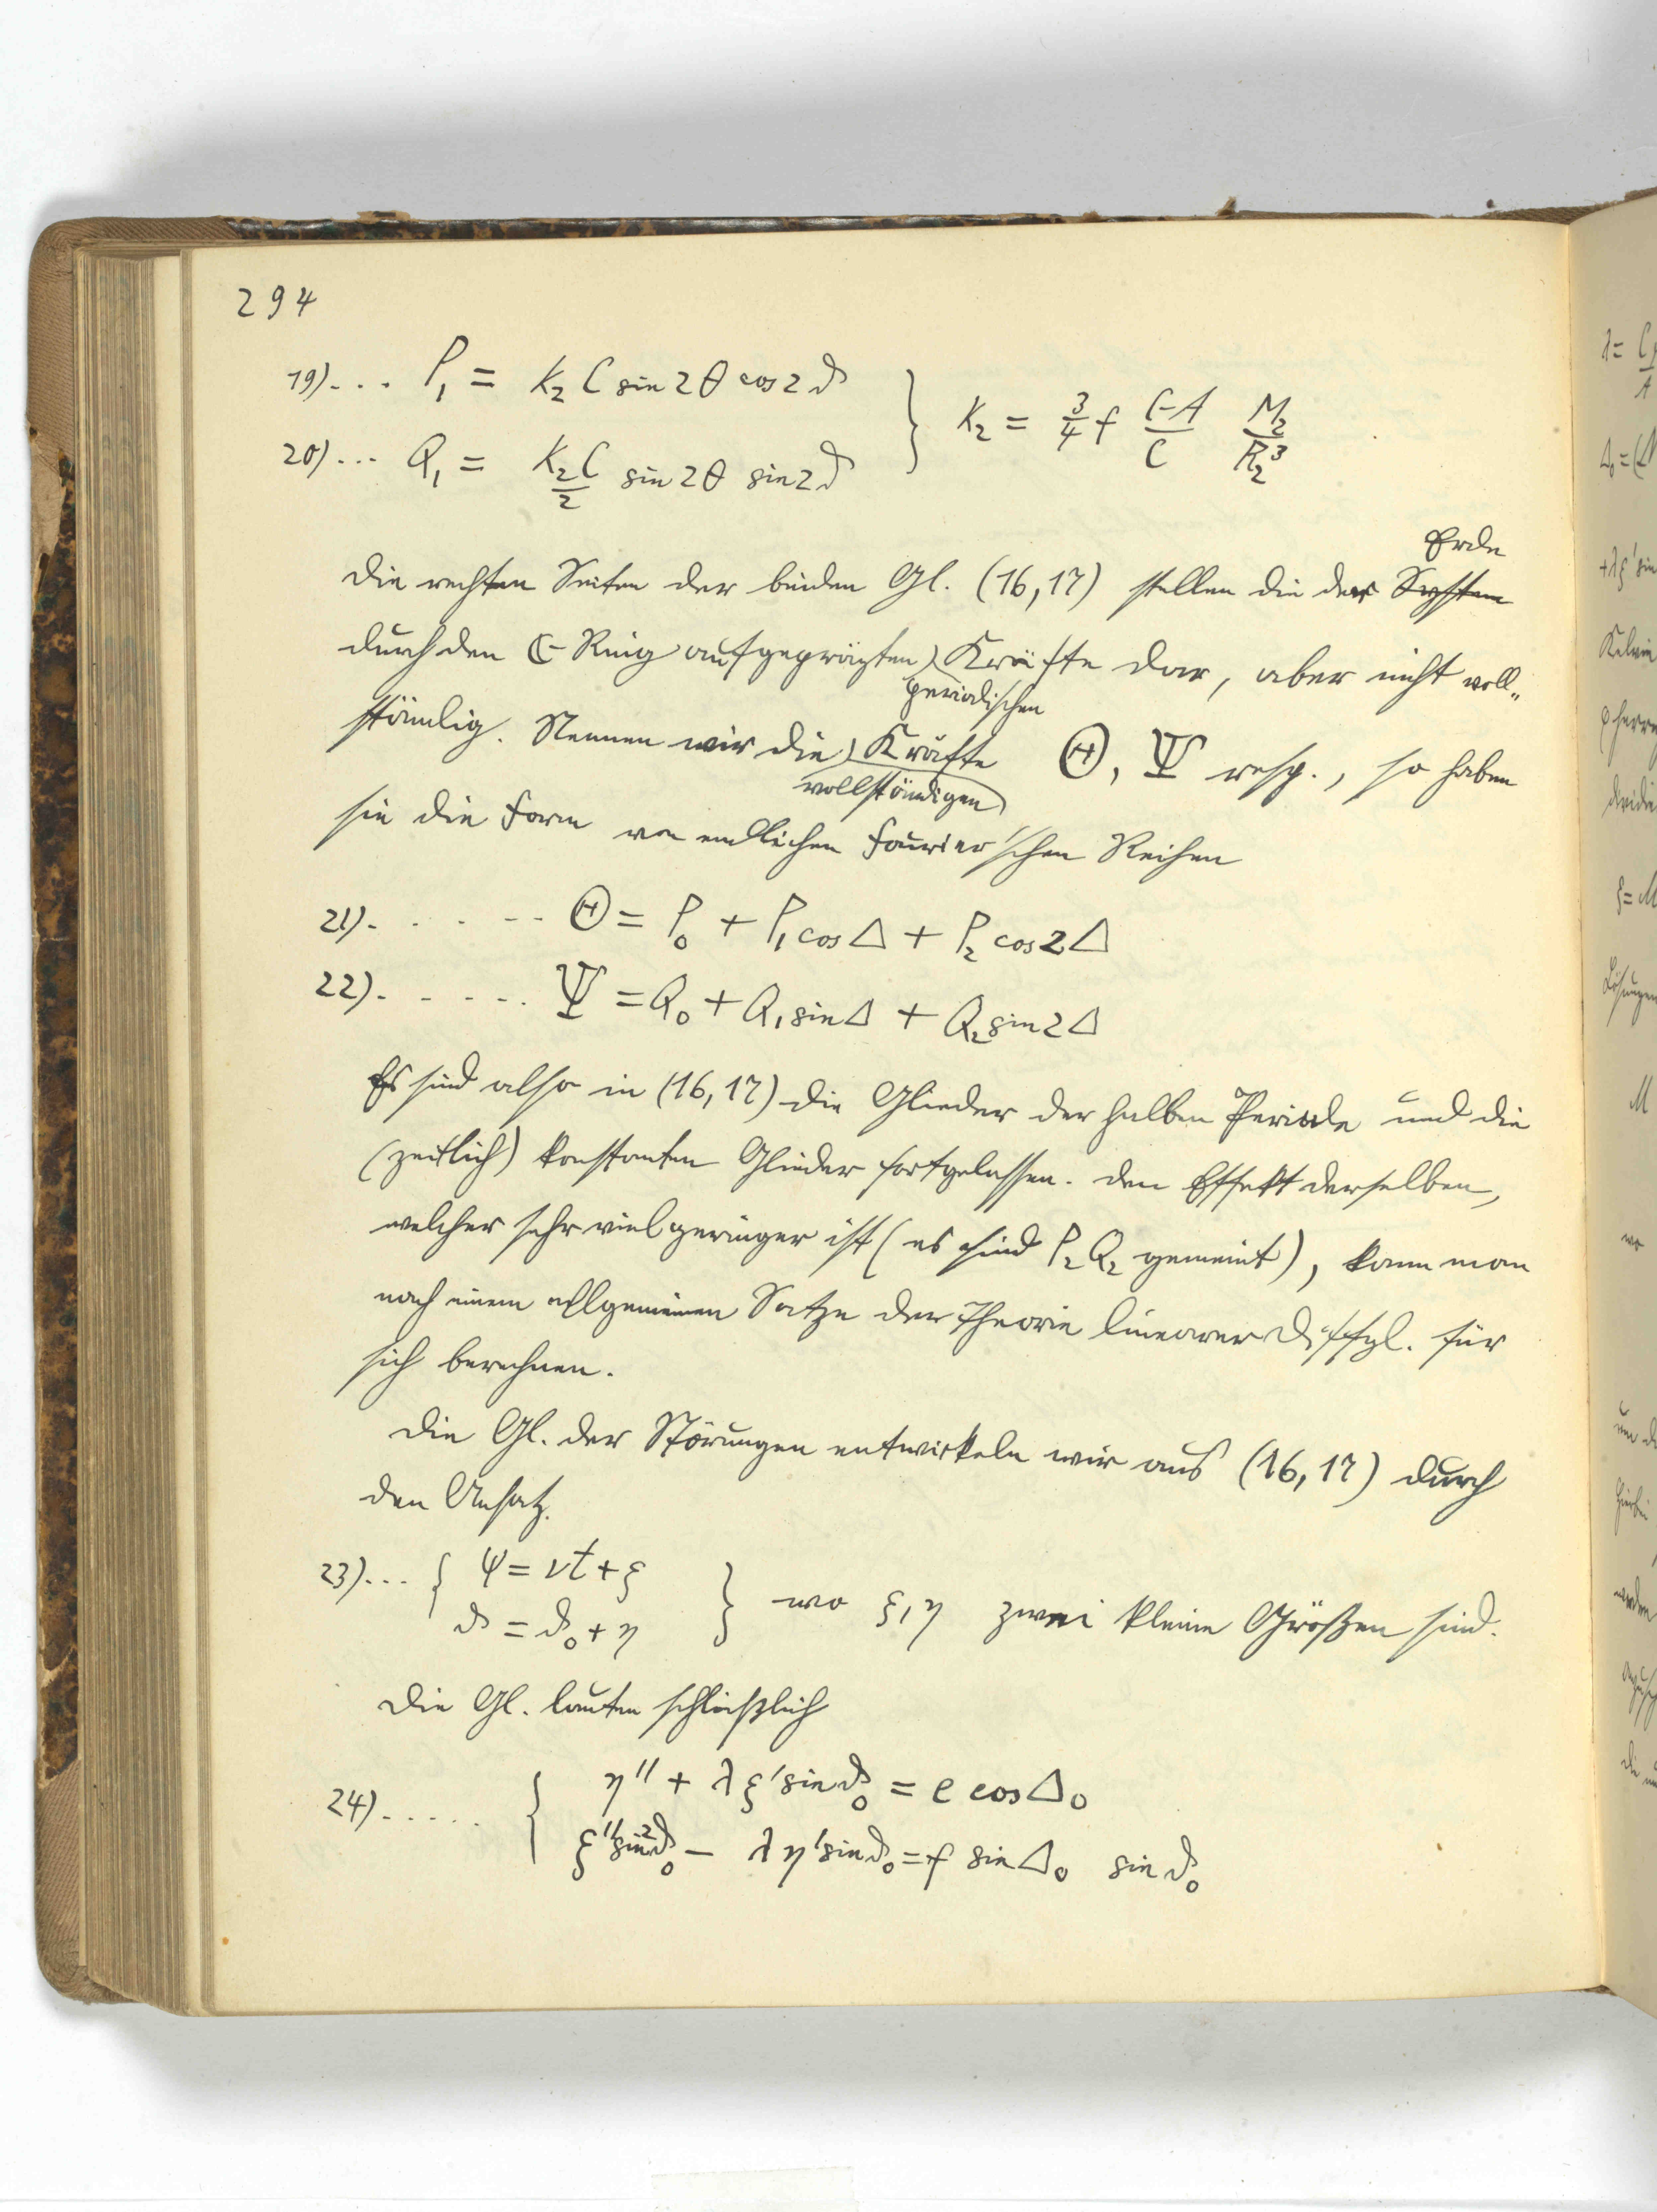 294
19)... P₁ = K₂ C sin 2θ cos 2ϑ
20)... Q₁ = K₂C/2 sin 2θ sin 2ϑ } K₂ = 3/4 f (C-A)/C M₂/R₂³
Erde
die rechten Seiten der beiden Gl. (16,17) stellen die der System
durch den ☾-Ring aufgeprägten Kräfte dar, aber nicht voll-
periodischen
ständig. Nennen wir die Kräfte Θ, Ψ resp., so haben
vollständigen
sie die Form von endlichen Fourier'schen Reihen
21)...... Θ = P₀ + P₁ cos Δ + P₂ cos 2Δ
22)...... Ψ = Q₀ + Q₁ sin Δ + Q₂ sin 2Δ
Es sind also in (16,17) die Glieder der halben Periode und die
(zeitlich) konstanten Glieder fortgelassen. Den Effekt derselben,
welcher sehr viel geringer ist (es sind P₂ Q₂ gemeint), kann man
nach einem allgemeinen Satze der Theorie linearer Diffgl. für
sich berechnen.
Die Gl. der Störungen entwickeln wir aus (16,17) durch
den Ansatz.
23)... { ψ = νt + ξ
ϑ = ϑ₀ + η } wo ξ, η zwei kleine Größen sind.
Die Gl. lauten schließlich
24)..... { η'' + λ ξ' sin ϑ₀ = e cos Δ₀
ξ'' sin² ϑ₀ − λ η' sin ϑ₀ = f sin Δ₀ sin ϑ₀